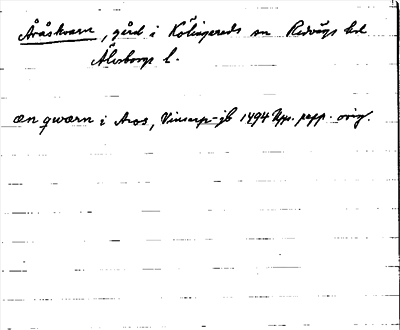 Åråskvarn, gård i Kölingereds sn Redvägs hd
Älvsborgs l.
æn qwærn i Aros, Vinsarp-jb 1494 Upps. papp. orig.